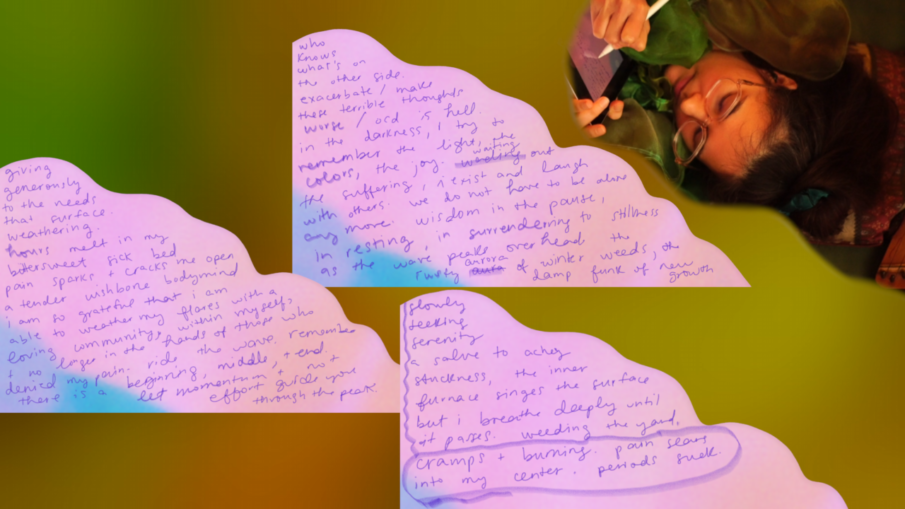 giving
generously
to the needs
that surface.
weathering.
hours melt in my
bittersweet sick bed
pain sparks + cracks me open
a tender wishbone bodymind
i am so grateful that i am
able to weather my flares with a
loving community, within myself,
+ no longer in the hands of those who
denied my pain. ride the wave. remember
there is a beginning, middle, + end.
let momentum + not
effort guide you
through the peak.
who
knows
what's on
the other side.
exacerbate / make
these terrible thoughts
worse / ocd is hell.
in the darkness, I try to
remember the light, the
colors, the joy. waiting out
the suffering, i exist and laugh
with others. we do not have to be alone
any more. wisdom in the pause,
in resting, in surrendering to stillness
as the wave peaks overhead. the
rusty aurora of winter weeds, the
damp funk of new
growth
slowly
seeking
serenity
a salve to achey
stuckness, the inner
furnace singes the surface
but i breathe deeply until
it passes. weeding the yard,
cramps + burning. pain sears
into my center. periods suck.